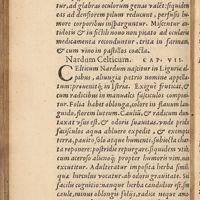 tur, ad glabras oculorum genas valet: siquidem
es ad densiorem pilum reducunt, perfusis hu-
more corporibus insparguntur. Miscentur an-
tidotis & in fictili nouo non picato ad ocularia
medicamenta reconduntur, trita in farinam,
& cum vino in pastillos coacta.
Nardum Celticum. CAP. VII.
Celticum Nardum nascitur in Liguriæ al-
pibus, aliuagia patrio nomine appella-
tum: prouenit & in Istria. Exiguus frutex, &
cum radicibus in manuales fasciculos compo-
nitur. Folia habet oblonga, colore in flauum lan-
guido, florem luteum. Caulium, & radicum dun-
taxat vsus est, & odoris suauitas. vnde pridie
fasciculos aqua abluere expedit, & exempta
terra, pauito udo, charta subiecta
te reponere: postridie repurgare.
cum aceroso alieno propter humoris vim
excutitur. Adulteratur imposita herba simili-
qua hirculus vocatur ab odoris grauitate. Sed
facilis cognitio: nanque herba candidior est, si-
ne caule, minus oblongis folijs, radice neque ama-